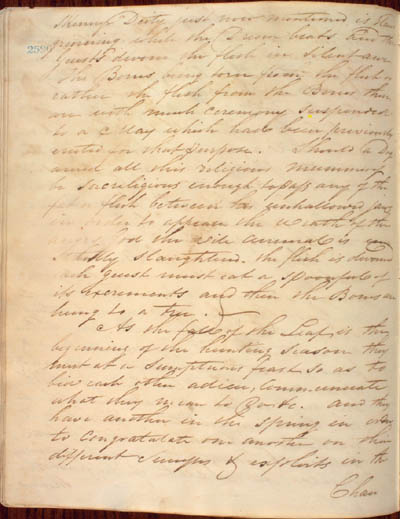 Skinny Deity just now mentioned is
remaining while the Drum beats and the
2536
Guests devour the flesh in silent awe
The Bones being torn from the flesh or
rather the flesh from the Bones these
are with much ceremony suspended
to a May which had been previously
erected for that purpose. Should a dog
amid all this religious mummery
be sacrilegious enough to pass any of the
fallen flesh between his unhallowed jaws
in order to appease the wrath of the
angry God the vile animal is
slaughtered. the flesh is devoured
each guest must eat a spoonful of
its excrements and then the Bones are
hung to a tree.
As the fall of the Leaf is the
beginning of the hunting Season they
hunt at a Sumptuous feast so as to
bid each other adieu, Communicate
what they mean to do &c. and they
have another in the Spring in order
to Congratulate one another on their
different Escapes & exploits in the
Chase